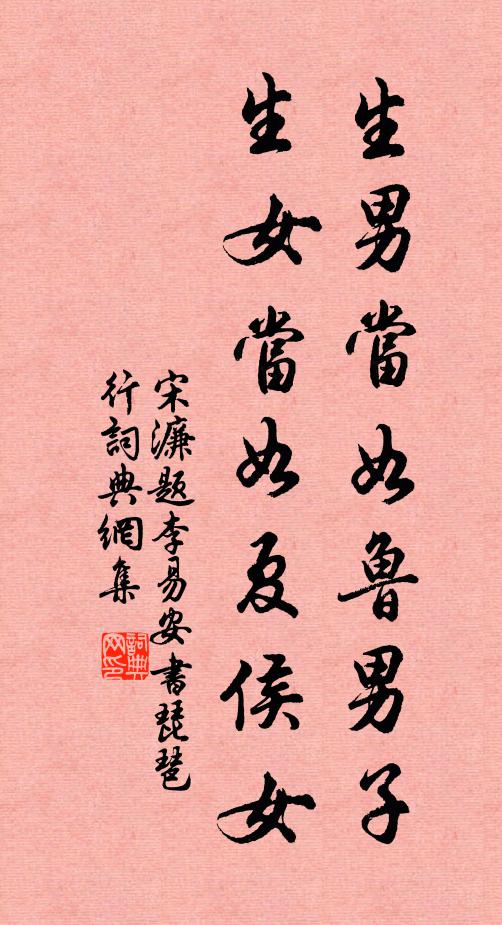 生男當如魯男子
生女當如夏侯女
宋濂題李易安書琵琶
行詞典網集
詞典
网印